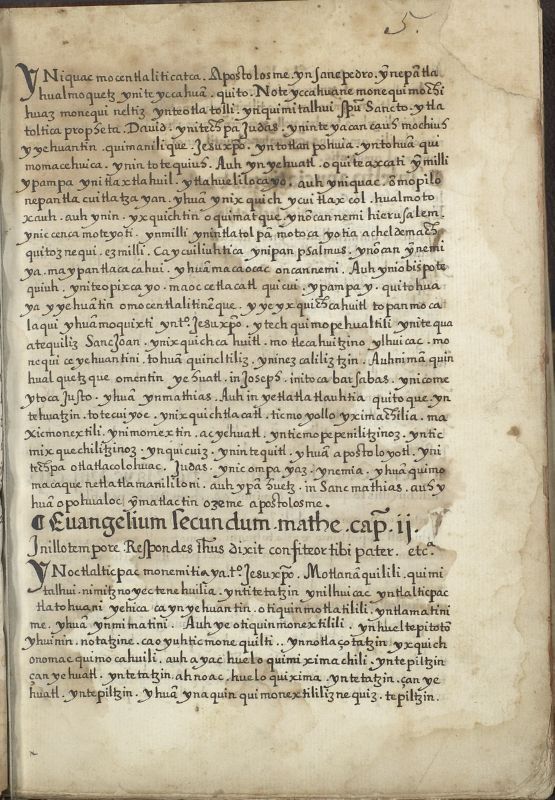 5.
YNiquac mocentlaliticatca. Apostolosme. yn sanc pedro. ynepãtla
hualmoquetz ynite yccahuã. quito. Note yccahuane monequi mochi
huaz monequi neltiz ynteotlatolli. yn quimitalhui spũ Sancto. ytla
toltica propheta. Dauid. ynitechpa Judas. yninte yacan cauh mochiuh
y yehuantin. quimanilique. Jesuxp̃o. yntotlan pohuia. yntohuã qui
momacehuica. ynin totequiuh. Auh yn yehuatl. oquiteaxcati ỹmilli
ypampa ynitlaxtlahuil. ytlahuelilocayo. auh yniquac. omopilo
nepantla cuitlatzayan. yhuã ynixquich ycuitlaxcol. hualmoto
xcauh. auh ynin. yxquichtin oquimatque ynõcan nemi hierusalem.
ynic cenca moteyoti. ynmilli ynintlatolpã motoca yotia acheldemach
quitoznequi. ezmilli. Ca ycuiliuhtica ynipan psalmus. ynõcan ỹnemi
ya. maypantlacacahui. yhuã macaocac oncannemi. Auh yniobispote
quiuh. yniteopixcayo. maoccetlacatl quicui. ypampa y. quitohua
ya y yehuãtin omocentlalitinẽque. yyeyxquich cahuitl topanmoca
laqui yhuã moquixti ynto. Jesuxp̃o. ytech quimopehualtili ynitequa
atequiliz Sanc Joan. ynixquichca huitl. motlecahuitzino ylhuicac. mo
nequi ce yehuantini. tohuã quineltiliz yninezcaliliztzin. Auhnimã quin
hualquetzque omentin yehuatl. in Joseph. initoca barsabas. ynicome
ytoca Justo. yhuã ynmathias. Auh in yetlatlatlauhtia quitoque. yn
tehuatzin. totecuiyoe. ynixquichtlacatl. ticmoyollo yximachilia. ma
xicmonextili. ynimomextin. ac yehuatl. ynticmopepenilitzinoz. yntic
mixquechilitzinoz. ynquicuiz. ynintequitl. yhuã apostoloyotl. yni
techpa otlatlacolohuac. Judas. ynicompa yaz. ynemia. yhuã quimo
macaque netlatlamanililoni. auh ypã huetz. in Sanc mathias. auh y
huã opohualoc ỹmatlactin ozeme apostolosme.
¶ Euangelium secundum. mathe. cap̃. ij.
In illo tempore. Respondes Ihus dixit confiteor tibi pater. etcª.
YNoctlalticpac monemitiaya. to. Jesuxp̃o. Motlanãquilili. quimi
talhui. nimitznoyectenehuilia. yntitetatzin ynilhuicac. yntlalticpac
tlatohuani yehica ca yn yehuantin. otiquinmotlatilili. yntlamatini
me. yhuã ynmimatini. Auh ye otiquinmonextilili. yñhueltepitotõ
yhuinin. notatzine. ca o yuhticmonequilti. ynnotlaçotatzin yxquich
onomac quimocahuili. auh ayac huelo quimiximachili. yntepiltzin
çan yehuatl. yntetatzin ahnoac. huelo quixima. yntetatzin. çan ye
huatl. yntepiltzin. yhuã ynaquin quimonextililiznequiz. tepiltzin.